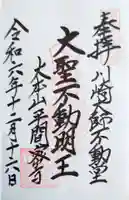 奉拝 川崎大師不動堂
大聖不動明王
大本山平間寺
令和六年十二月十六日